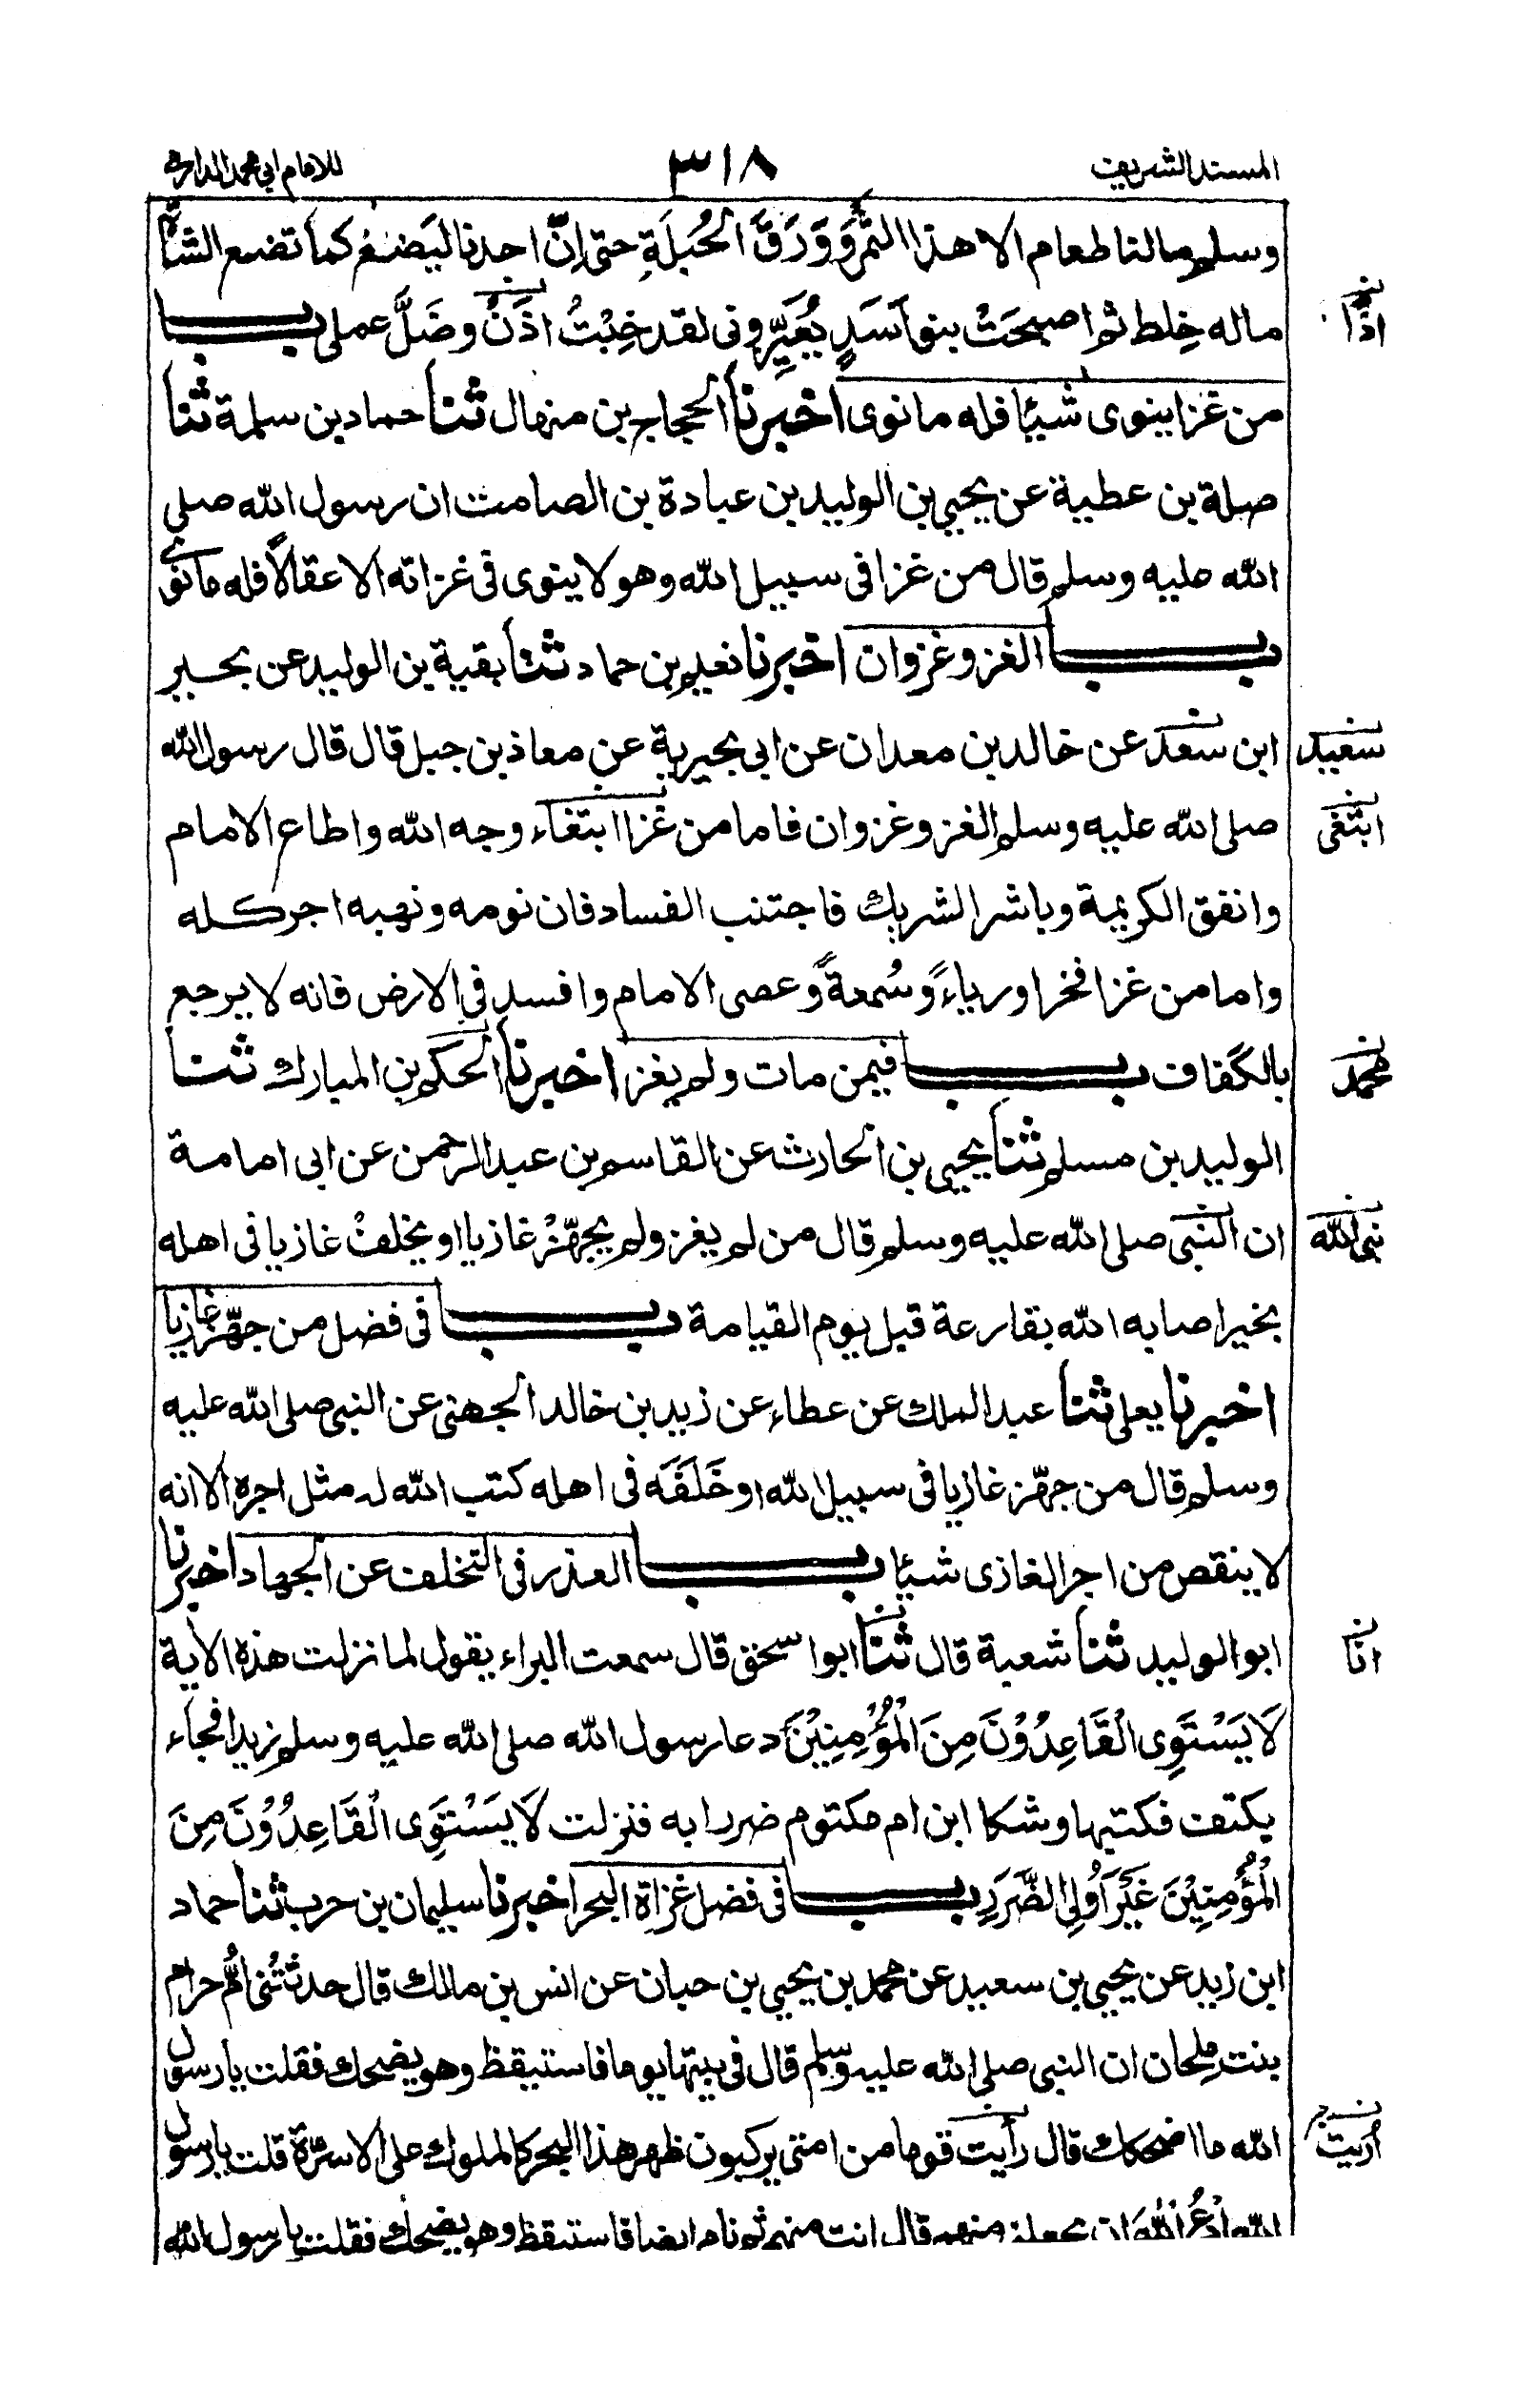 المسند الشريف ٣١٨ للامام ابي محمد الدارمي
وسلم مالنا طعام الا هذا التَّمْرُ وَوَرَقَ الحُبْلَةِ حتى اِنَّ احدنا ليَضَعُ كما تضع الشاة
ماله خِلط ثم اصبحَتْ بنو اَسَدٍ يُعَيِّروني لقد خِبْتُ اذَنْ وضَلَّ عملي بــــاب
اذًا
من غزا ينوى شيئا فله مانوى اخبرنا الحجاج بن منهال ثنا حماد بن سلمة ثنا
صلة بن عطية عن يحيى بن الوليد بن عبادة بن الصامت ان رسول الله صلى
الله عليه وسلم قال من غزا فى سبيل الله وهو لا ينوى فى غزاته الا عقالاً فله مانوى
بــــاب الغزو غزوان اخبرنا نعيم بن حماد ثنا بقية بن الوليد عن بحير
ابن سعد عن خالد بن معدان عن ابى بحيرية عن معاذ بن جبل قال قال رسول الله
سعيد
صلى الله عليه وسلم الغزو غزوان فاما من غزا ابتغاء وجه الله واطاع الامام
ابتغى
وانفق الكريمة وباشر الشريك فاجتنب الفساد فان نومه ونهبه اجر كله
واما من غزا فخرا ورياءً وسُمعةً وعصى الامام وافسد في الارض فانه لا يرجع
بالكَفاف بــــاب فيمن مات ولم يغز اخبرنا الحكم بن المبارك ثنا
محمد
الوليد بن مسلم ثنا يحيى بن الحارث عن القاسم بن عبد الرحمن عن ابى امامة
ان النبى صلى الله عليه وسلم قال من لم يغز ولم يجهّزْ غازيا او يخلفْ غازيا فى اهله
نبى الله
بخير اصابه الله بقارعة قبل يوم القيامة بــــاب فى فضل من جهّز غازيا
اخبرنا يعلى ثنا عبد الملك عن عطاء عن زيد بن خالد الجهنى عن النبى صلى الله عليه
وسلم قال من جهّز غازيا فى سبيل الله او خَلَفَه فى اهله كتب الله له مثل اجره الا انه
لا ينقص من اجر الغازى شيئا بــــاب العذر فى التخلف عن الجهاد اخبرنا
ابو الوليد ثنا شعبة قال ثنا ابو اسحق قال سمعت البراء يقول لما نزلت هذه الاية
انا
لَا يَسْتَوِى الْقَاعِدُوْنَ مِنَ الْمُؤْمِنِيْنَ دعا رسول الله صلى الله عليه وسلم زيدا فجاء
بكتف فكتبها وشكا ابن ام مكتوم ضررا به فنزلت لَا يَسْتَوِى الْقَاعِدُوْنَ مِنَ
الْمُؤْمِنِيْنَ غَيْرَ اُولِى الضَّرَرِ بــــاب فى فضل غزاة البحر اخبرنا سليمان بن حرب ثنا حماد
ابن زيد عن يحيى بن سعيد عن محمد بن يحيى بن حبان عن انس بن مالك قال حدثتْنى اُمُّ حرام
بنت مِلحان ان النبى صلى الله عليه وسلم قال فى بيتها يوما فاستيقظ وهو يضحك فقلت يارسول
الله ما اضحكك قال رأيت قوما من امتى يركبون ظهر هذا البحر كالملوك على الاسرّة قلت يارسول
اُريت
الله اُدْعُ اللهَ ان يجعلنى منهم قال انت منهم ثم نام ايضا فاستيقظ وهو يضحك فقلت يا رسول الله